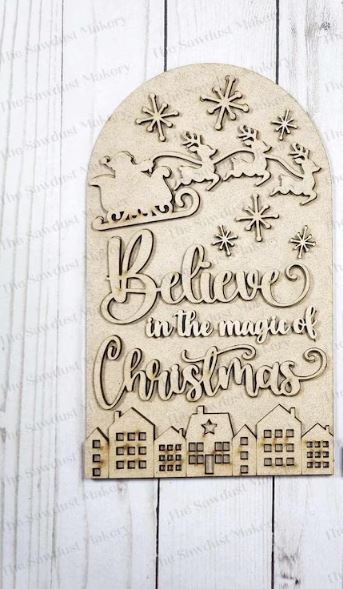 Believe
in the magic of
Christmas
The Sawdust Makery